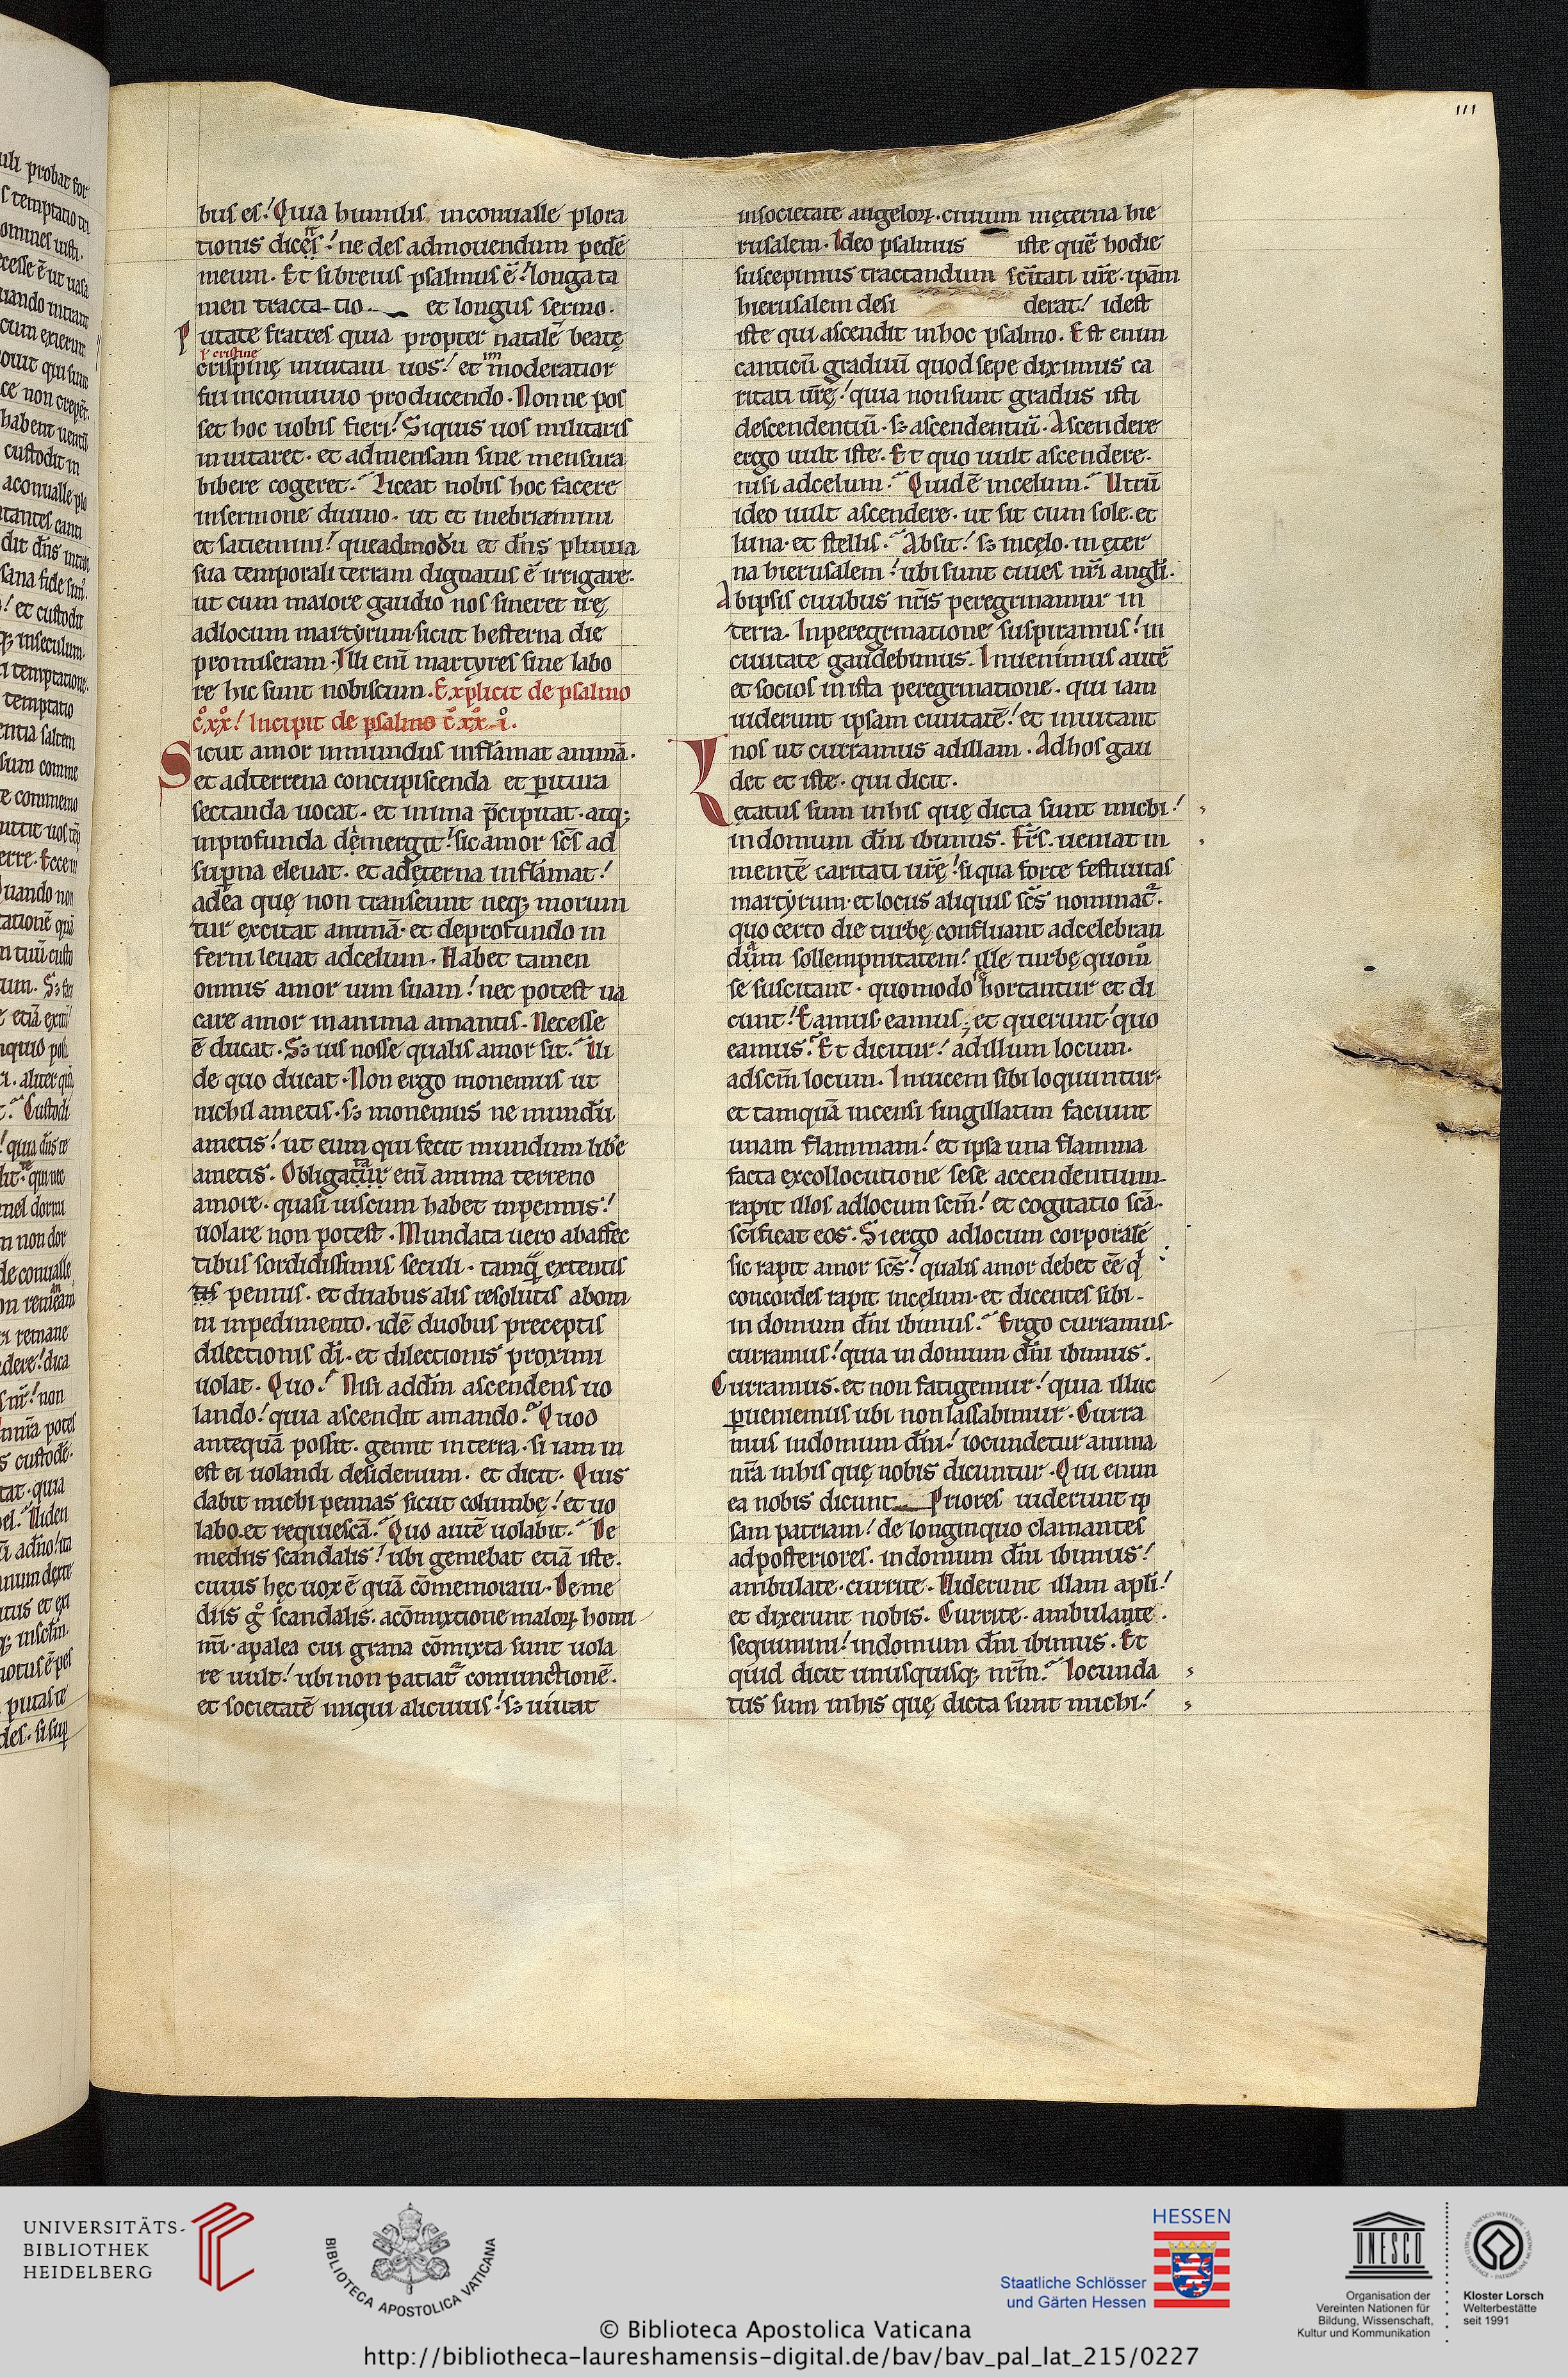 111
bus es! Quia humilis inconualle plora
tionis dices! ne des admouendum pedē
meum. Et si breuis psalmus ē! longa ta
men tracta tio et longus sermo.
Putate fratres quia propter natalē beatę
ł cristine
crispinę inuitaui uos! et īmoderatior
fui inconuiuio producendo. Nonne pos
set hoc uobis fieri! Siquis uos militaris
inuitaret. et admensam sine mensura
bibere cogeret. Liceat nobis hoc facere
insermone diuino. ut et inebriemini
et satiemini! queadmodū et dn̄s pluuia
sua temporali terram dignatus ē irrigare.
ut cum maiore gaudio nos sineret ire
adlocum martyrum sicut hesterna die
promiseram. Illi enī martyres sine labo
re hic sunt nobiscum. Explicit de psalmo
cͦxxͦ! Incipit de psalmo cͦ xxͦ iͦ.
Sicut amor inmundus inflāmat animā.
et adterrena concupiscenda et ꝑitura
sectanda uocat. et inima p̄cipitat. atq;
inprofunda demergit! sic amor sc̄s ad
suꝑna eleuat. et adęterna inflāmat!
adea quę non transeunt neq; morium
tur excitat animā. et deprofundo in
ferni leuat adcelum. Habet tamen
omnis amor uim suam! nec potest ua
care amor inanima amantis. Necesse
ē ducat. Sꝫ uis nosse qualis amor sit. Ui
de quo ducat. Non ergo monemus ut
nichil ametis. sꝫ monemus ne mundū
ametis! ut eum qui fecit mundum libe
ametis. Obligatur enī anima terreno
amore. quasi uiscum habet inpennis!
uolare non potest. Mundata uero abaffec
tibus sordidissimis seculi. tamq̄ extentis
tis pennis. et duabus alis resolutis abom
ni inpedimento. idē duobus preceptis
dilectionis dī. et dilectionis proximi
uolat. Quo! Nisi addm̄ ascendens uo
lando! quia ascendit amando. Quod
antequā possit. gemit interra. si iam in
est ei uolandi desiderium. et dicit. Quis
dabit michi pennas sicut columbę! et uo
labo. et requiescā. Quo autē uolabit. De
mediis scandalis! ubi gemebat etiā iste.
cuius hęc uox ē quā cōmemoraui. De me
diis gͦ scandalis. acōmixtione maloꝝ homi
nū. apalea cui grana cōmixta sunt uola
re uult! ubi non patiat᷑ coniunctionē.
et societatē iniqui alicuius! sꝫ uiuat
insocietate angeloꝝ. ciuium inęterna hie
rusalem. Ideo psalmus iste quē hodie
suscepimus tractandum sc̄itati ur̄e. ipsam
hierusalem desi derat! idest
iste qui ascendit inhoc psalmo. Est enim
canticū graduū quod sepe diximus ca
ritati ur̄ę! quia nonsunt gradus isti
descendentiū. sꝫ ascendentiū. Ascendere
ergo uult iste. Et quo uult ascendere.
nisi adcelum. Quid ē incelum. Utrū
ideo uult ascendere. ut sit cum sole. et
luna. et stellis. Absit! sꝫ incęlo. in ęter
na hierusalem! ubi sunt ciues nr̄i angl̄i.
Abipsis ciuibus nr̄is peregrinamur in
terra. Inperegrinatione suspiramus! in
ciuitate gaudebimus. Inuenimus autē
et socios inista peregrinatione. qui iam
uiderunt ipsam ciuitatē! et inuitant
nos ut curramus adillam. Adhos gau
det et iste. qui dicit.
Letatus sum inhis quę dicta sunt michi!
in domum dn̄i ibimus. Fr̄s. ueniat in
mentē caritati ur̄ę! siqua forte festiuitas
martyrum. et locus aliquis sc̄s nominat᷑.
quo certo die turbę confluant adcelebran
dam sollempnitatem! ille turbę quom̊
se suscitant. quomodo se hortantur et di
cunt! Eamus eamus; et querunt! quo
eamus. Et dicitur! adillum locum.
adscm̄ locum. Inuicem sibi loquuntur.
et tamquā incensi singillatim faciunt
unam flammam! et ipsa una flamma
facta excollocutione sese accendentium
rapit illos adlocum scm̄! et cogitatio scā
scīficat eos. Si ergo adlocum corporalē
sic rapit amor sc̄s! qualis amor debet eē q̇
concordes rapit incęlum. et dicentes sibi.
in domum dn̄i ibimus. Ergo curramus.
curramus! quia in domum dn̄i ibimus.
Curramus. et non fatigemur! quia illuc
ꝑueniemus ubi non lassabimur. Curra
mus indomum dn̄i! iocundetur anima
nr̄a inhis quę nobis dicuntur. Qui enim
ea nobis dicunt Priores uiderunt ip
sam patriam! de longinquo clamantes
adposteriores. indomum dn̄i ibimus!
ambulate. currite. Uiderunt illam apl̄i!
et dixerunt nobis. Currite. ambulante.
sequimini! indomum dn̄i ibimus. Et
quid dicit unusquisq; nr̄m. Iocunda
tus sum inhis quę dicta sunt michi!
UNIVERSITÄTS-
BIBLIOTHEK
HEIDELBERG
BIBLIOTECA APOSTOLICA VATICANA
HESSEN
Staatliche Schlösser
und Gärten Hessen
UNESCO
Organisation der
Vereinten Nationen für
Bildung, Wissenschaft,
Kultur und Kommunikation
Kloster Lorsch
Welterbestätte
seit 1991
© Biblioteca Apostolica Vaticana
http://bibliotheca-laureshamensis-digital.de/bav/bav_pal_lat_215/0227